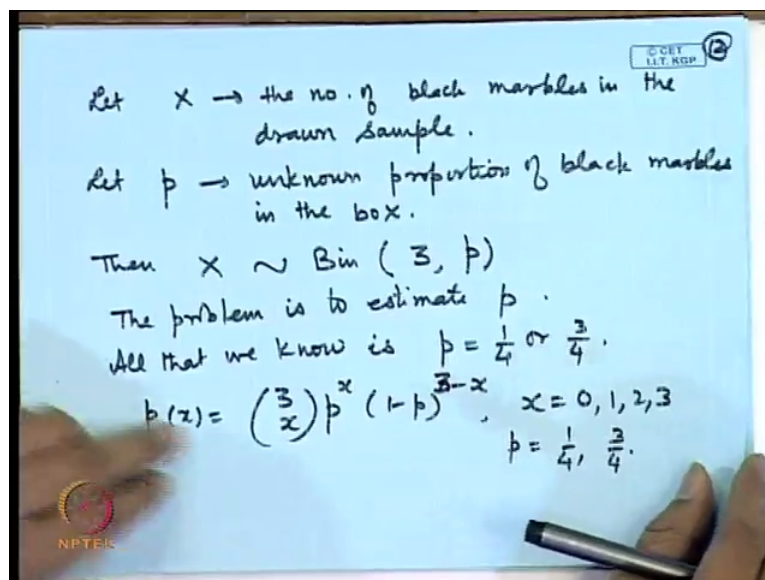 © CET
I.I.T. KGP
12
Let X → the no. of black marbles in the
drawn sample.
Let p → unknown proportion of black marbles
in the box.
Then X ~ Bin (3, p)
The problem is to estimate p.
All that we know is p = 1/4 or 3/4.
p(x) = (3 x) p^x (1-p)^3-x, x = 0, 1, 2, 3
p = 1/4, 3/4.
NPTEL